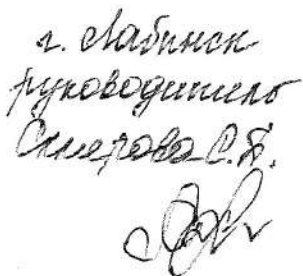 г. Лабинск
руководитель
Смерова С.П.